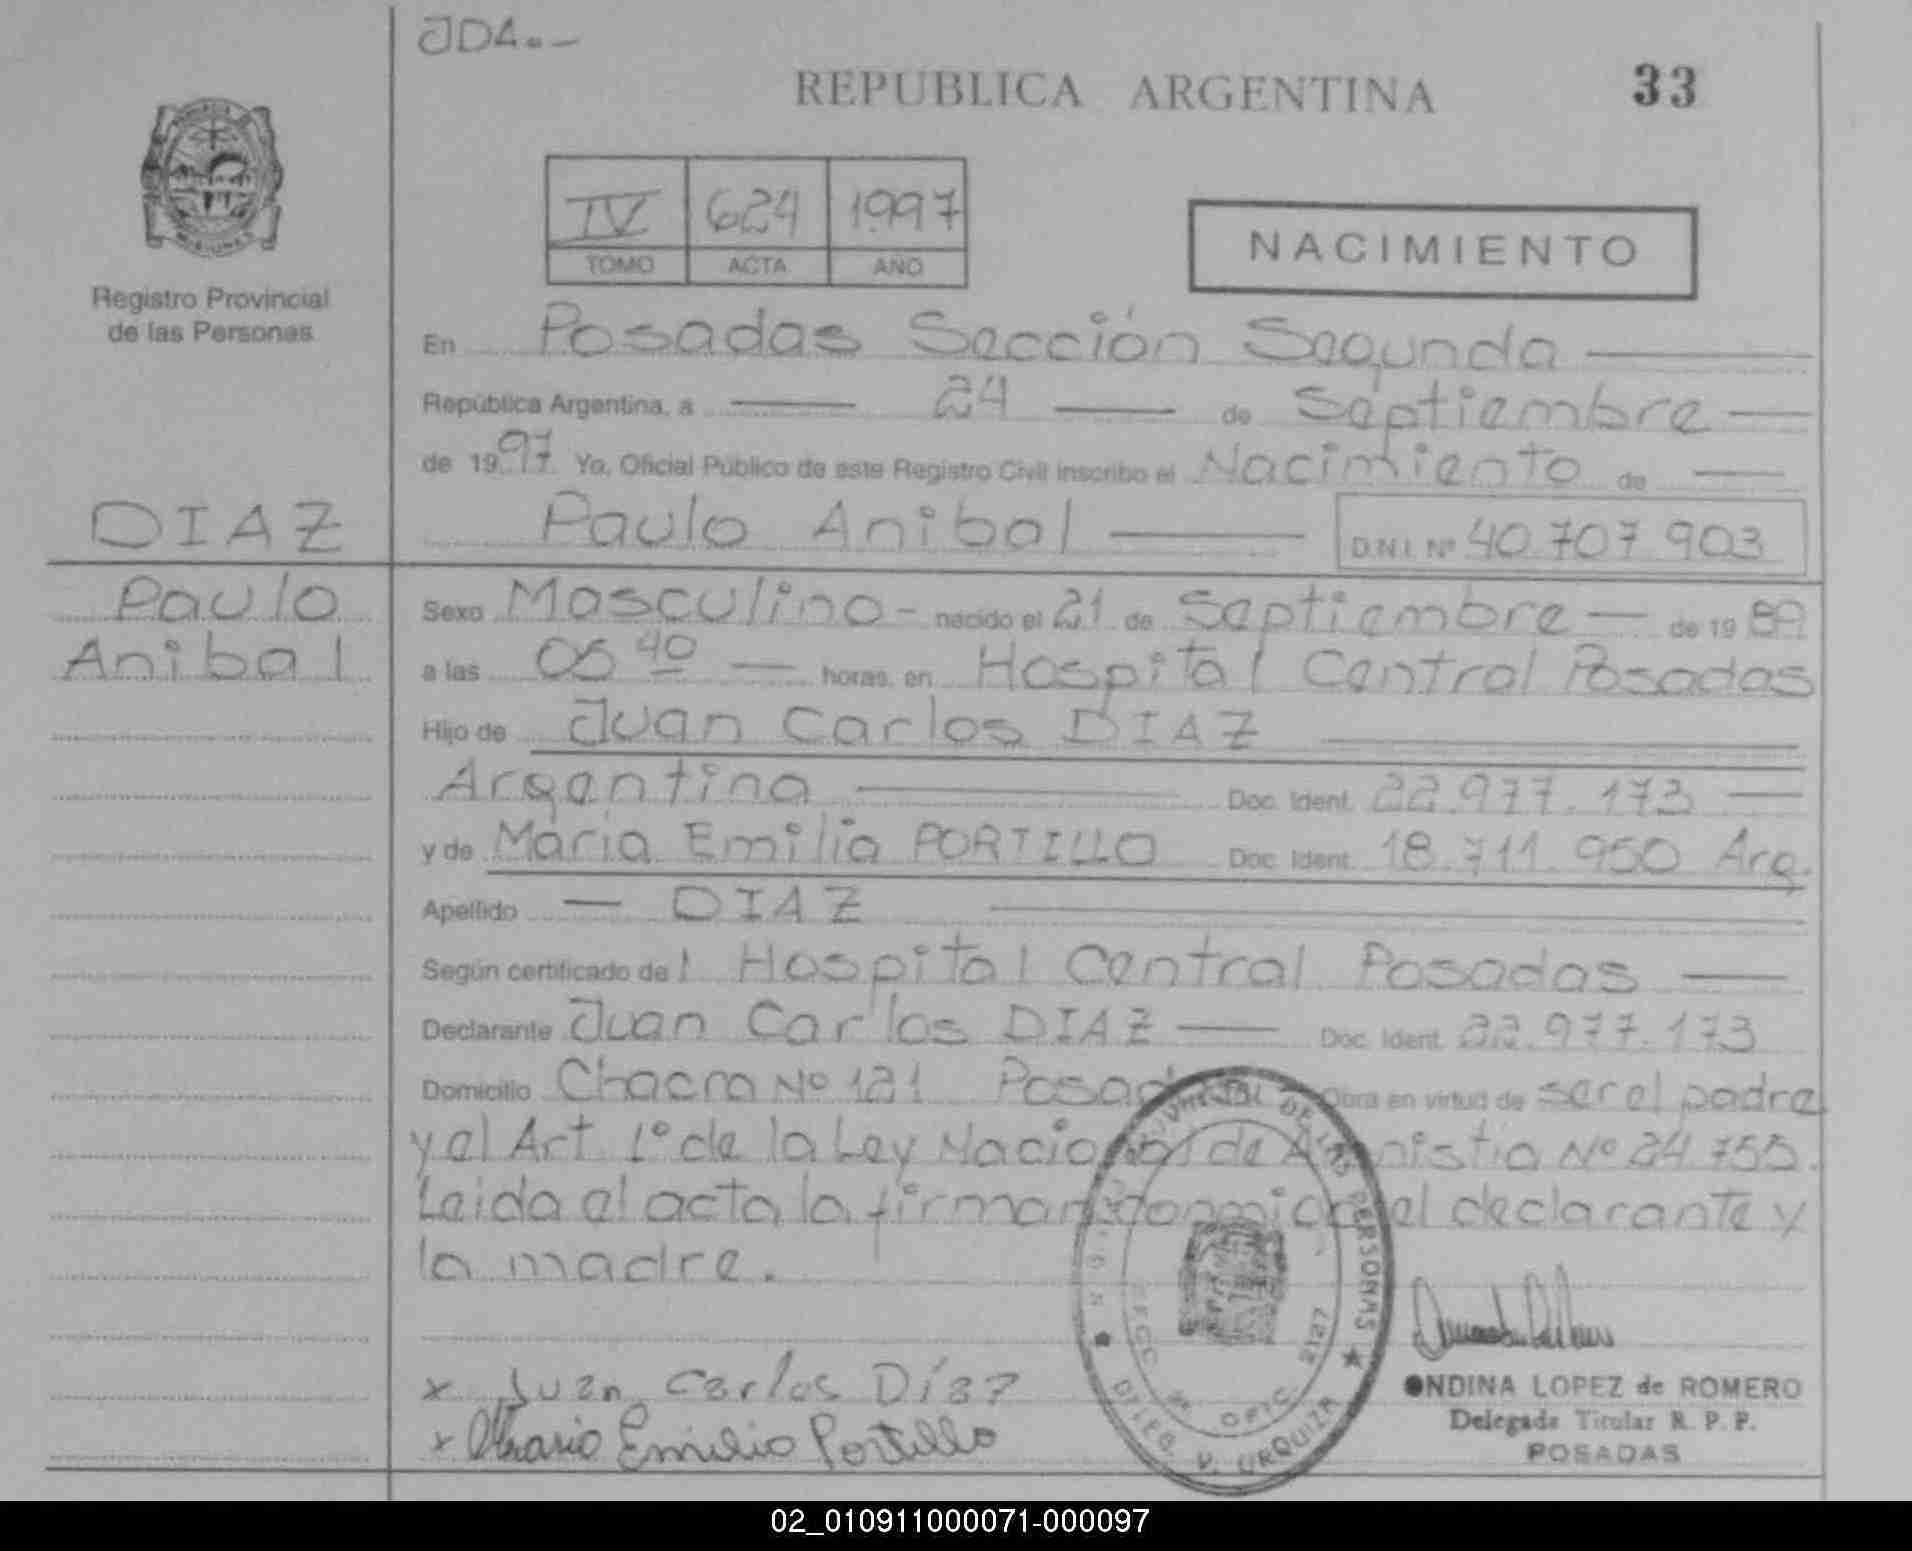 JDA.-
REPUBLICA ARGENTINA 33
IV 624 1997
TOMO ACTA AÑO
NACIMIENTO
MISIONES
Registro Provincial
de las Personas
En Posadas Sección Segunda
República Argentina, a 24 de Septiembre
de 1997 Yo, Oficial Público de este Registro Civil inscribo el Nacimiento de
DIAZ Paulo Anibal D.N.I. Nº 40.707.903
Paulo
Anibal
Sexo Masculino - nacido el 21 de Septiembre de 1989
a las 05 40 horas, en Hospital Central Posadas
Hijo de Juan Carlos DIAZ
Argentino Doc. Ident. 22.977.173
y de María Emilia PORTILLO Doc. Ident. 18.711.950 Arg.
Apellido DIAZ
Según certificado del Hospital Central Posadas
Declarante Juan Carlos DIAZ Doc. Ident. 22.977.173
Domicilio Chacra Nº 121 Posadas Obra en virtud de ser el padre
y el Art. 1º de la Ley Nacional de Amnistia Nº 24.755.
Leida el acta la firman conmigo el declarante y
la madre.
DE LAS PERSONAS
OFIC. 2127
DELEG. V. URQUIZA
x Juan Carlos Díaz
x Maria Emilia Portillo
ONDINA LOPEZ de ROMERO
Delegada Titular R. P. P.
POSADAS
02_010911000071-000097